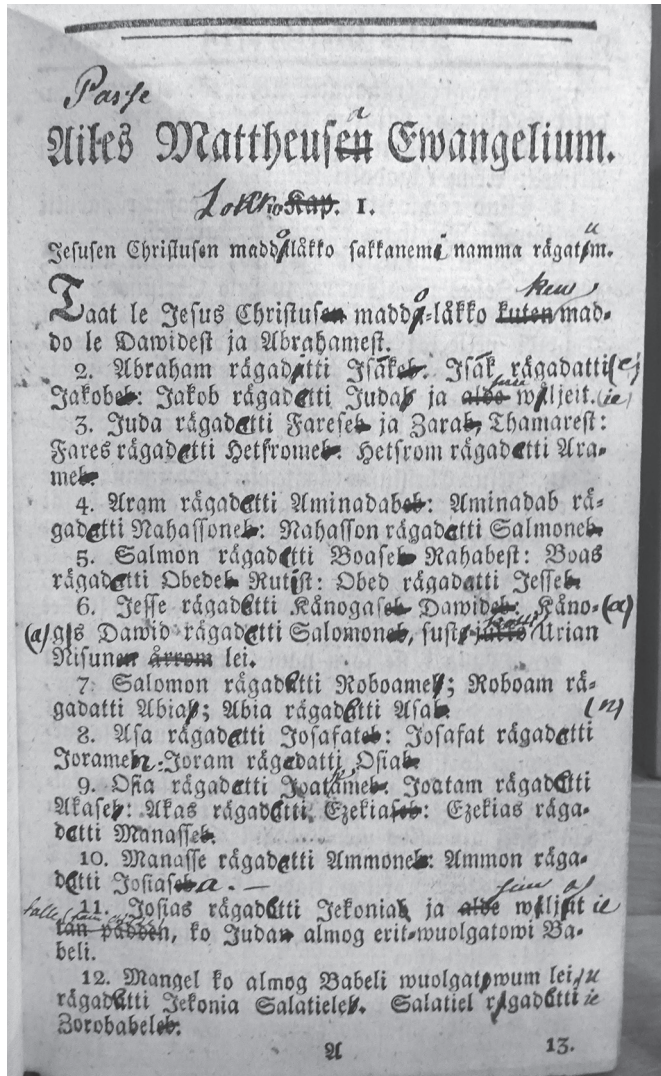 Passe
a
Ailes Mattheusen Ewangelium.
Lokko Kap. I.
u
Jesusen Christusen maddo låkko sakkanemi namma rägatim.
ken
Taat le Jesus Christusen maddo-låkko kuten mad-
do le Dawidest ja Abrahamest.
2. Abraham rägadatti Isakeb. Isak rägadatti
Jakobeb: Jakob rägadatti Judab ja aldе wiljeit. (ie)
3. Juda rägadatti Fareseb ja Zarab, Thamarest:
Fares rägadatti Hetsromeb. Hetsrom rägadatti Ara-
meb.
4. Aram rägadatti Aminadabeb: Aminadab rä-
gadatti Nahassoneb: Nahasson rägadatti Salmoneb.
5. Salmon rägadatti Boaseb Rahabest: Boas
rägadatti Obedeb Rutist: Obed rägadatti Jesseb.
6. Jesse rägadatti Kånogaseb Dawideb: Kåno- (a)
(a) gis Dawid rägadatti Salomoneb, sust jukko Urian
Nisunen årrom lei.
7. Salomon rägadatti Roboameb; Roboam rä-
gadatti Abiab; Abia rägadatti Asab. (n)
8. Asa rägadatti Josafateb: Josafat rägadatti
Jorameb: Joram rägadatti Osiab.
9. Osia rägadatti Joatameb. Joatam rägadatti
Akaseb: Akas rägadatti Ezekiaseb: Ezekias räga-
datti Manasseb.
10. Manasse rägadatti Ammoneb: Ammon räga-
datti Josiaseb a. —
11. Josias rägadatti Jekoniab ja alde wiljit ie
tan padden, ko Judan almog erit-wuolgatowi Ba-
beli.
12. Mangel ko almog Babeli wuolgatowum lei, u
rägadatti Jekonia Salatieleb. Salatiel rägadatti ie
Zorobabeleb.
A 13.